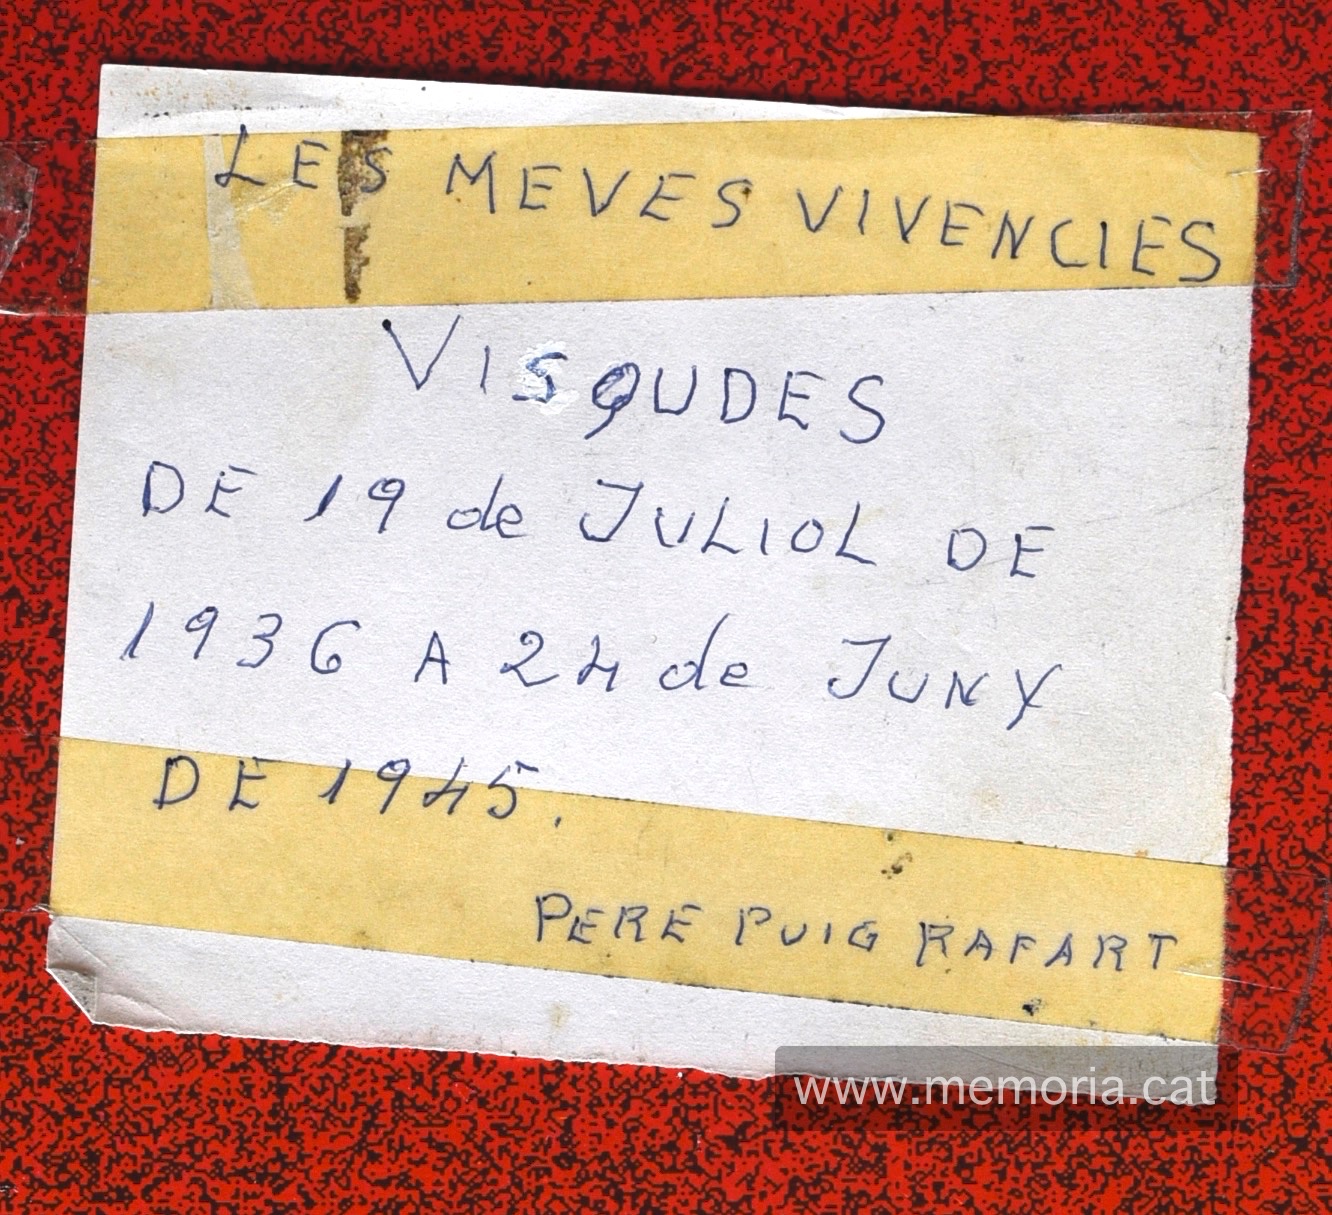 LES MEVES VIVENCIES
VISQUDES
DE 19 de JULIOL DE
1936 A 24 de JUNY
DE 1945.
PERE PUIG RAFART
www.memoria.cat